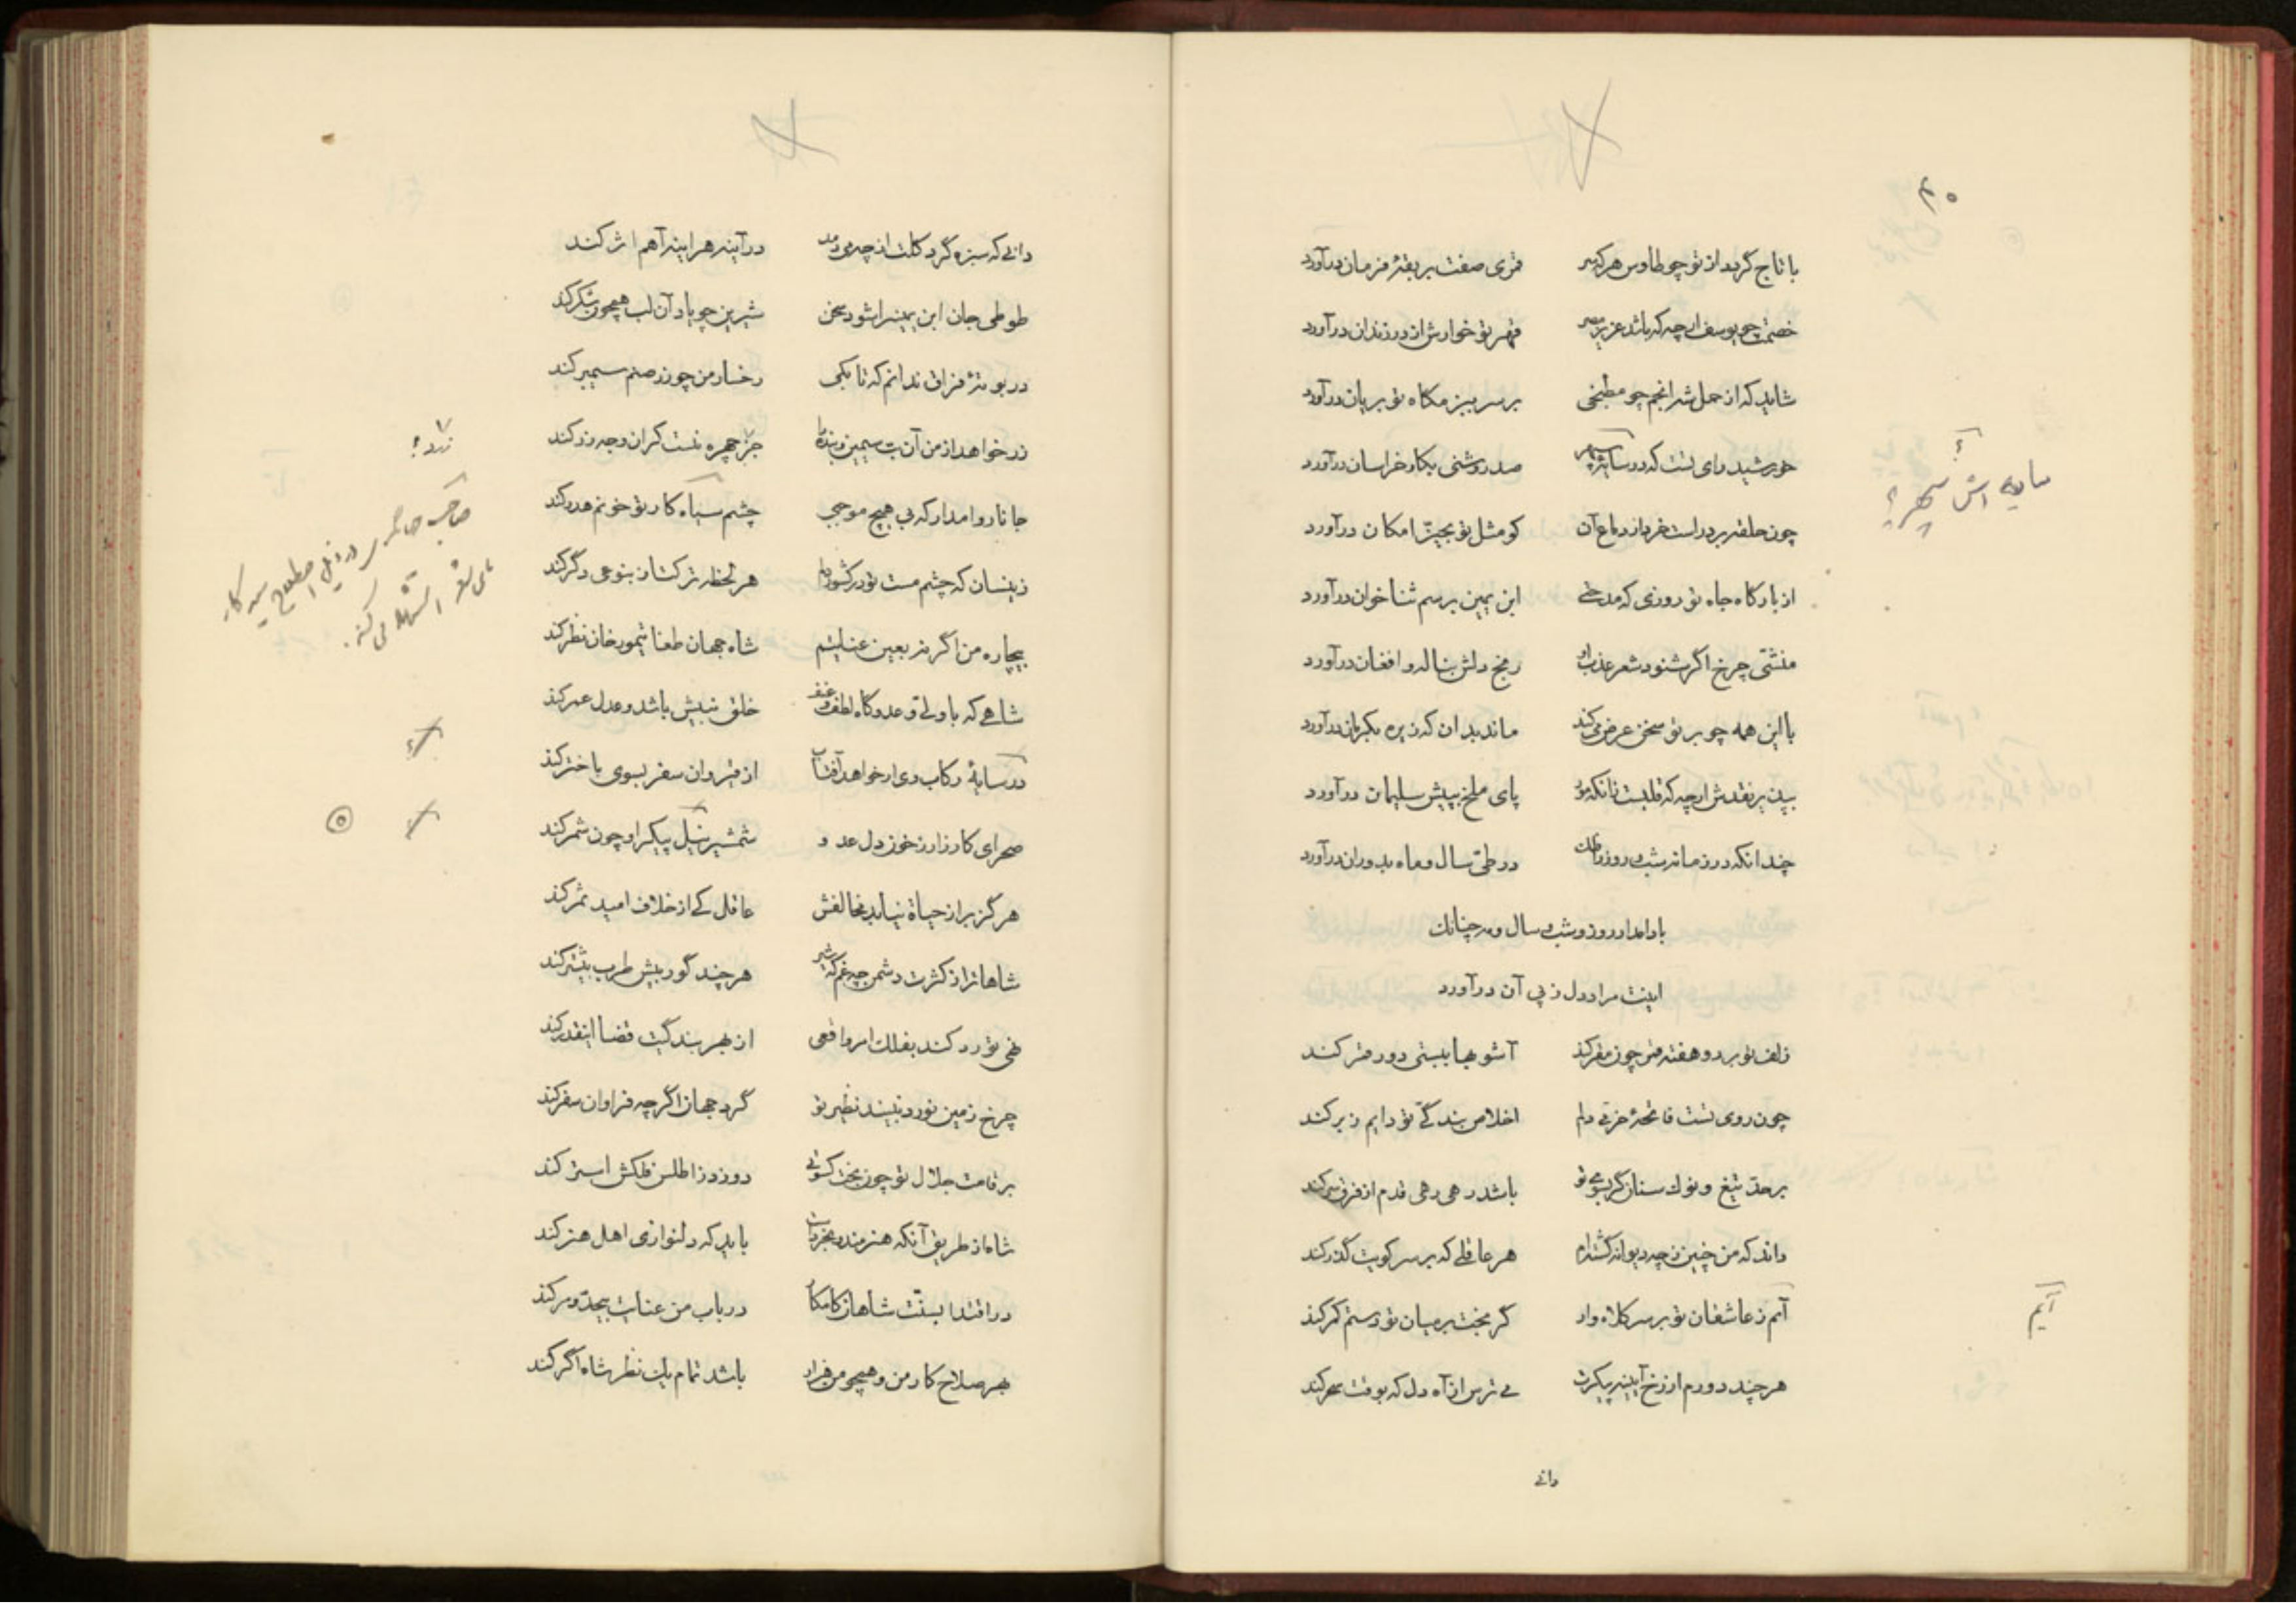 با تاج گردد از تو چو طاوس هر که سر قمری صفت بربقهٔ فرمان درآورد
خصمت چو یوسف ارچه که باشد عزیز مصر قهر تو خوارش از در زندان درآورد
شاید که از حمل شه انجم چو مطبخی بر سر بیزمگاه تو بریان درآورد
خورشید رای تست که در سایهٔ سپهر صد روشنی بکار خراسان درآورد
چون حلقه بر در است خرد از دماغ آن کو مثل تو بحیّز امکان درآورد
از بارگاه جاه تو روزی که مدحتی ابن یمین برسم ثنا خوان درآورد
منشی چرخ اگر شنود شعر عذب او رنج دلش بناله و افغان درآورد
با این همه چو بر تو سخن عرض می کند ماند بدان که زیره بکرمان درآورد
ببین بر نقدش ارچه که قلبست زانکه مور پای ملخ بپیش سلیمان درآورد
چندانکه در زمانه شب و روز را فلك در طیّ سال و ماه بدوران درآورد
بادا مدار روز و شب و سال و مه چنانك
اینت مراد دل ز پی آن درآورد
زلف تو بر دو هفته قمر چون مقر کند آشوبها ببستی دور قمر کند
چون روی تست فاتحهٔ خرّمی دلم اخلاص بندگیّ تو دایم ز بر کند
بر حدّ تیغ و نوك سنان گر بسوی تو باشد رهی رهی قدم از فرق سر کند
داند که من چنین ز چه دیوانه گشته‌ام هر عاقلی که بر سر کویت گذر کند
آیم ز عاشقان تو بر سر کلاه وار گر بخت بر میان تو دستم کمر کند
هر چند دورم از رخ آیینه پیکرت می ترس از آه دل که بوقت سحر کند
دانی
آیم
دانی که سبزه گرد گلت از چه می دمد در آینه هر اینه آهم اثر کند
طوطی جان ابن یمین را شود سخن شیرین چو یاد آن لب همچون شکر کند
در بوتهٔ فراق ندانم که تا بکی رخسار من چو زر صنم سیمبر کند
زر خواهد از من آن بت سیمین و بنده را جز چهره نیست کز ان وجه زر کند
جانا روا مدار که بی هیچ موجبی چشم سیاه کار تو خونم هدر کند
زینسان که چشم مست تو در کشور دلم هر لحظه ترکتاز بنوعی دگر کند
بیچاره من اگر نه بعین عنایتم شاه جهان طغا تیمور خان نظر کند
شاهی که با ولی و عدو گاه لطف و عنف خلق نبیش باشد و عدل عمر کند
در سایهٔ رکاب وی ار خواهد آفتاب از قیروان سفر بسوی باختر کند
صحرای کارزار ز خون دل عدو شمشیر نیل پیکر او چون شمر کند
هرگز بر از حیاة نیابد مخالفش عاقل کی از خلاف امید ثمر کند
شاها ترا ز کثرت دشمن چه غم که شیر هر چند گور بیش طرب بیشتر کند
طی تو رد کند بفلك امر واقعی از بهر بندگیت قضا اینقدر کند
چرخ زمین نورد نبیند نظیر تو گرد جهان اگرچه فراوان سفر کند
بر قامت جلال تو چون بخت کسوتی دوزد ز اطلس فلکش استر کند
شاه از طریق آنکه هنرمند پرورست باید که دلنوازی اهل هنر کند
در اقتدا بسنّت شاهان کامکار در باب من عنایت بیحدّ و مر کند
بهر صلاح کار من و همچو من هزار باشد تمام یك نظر شاه اگر کند